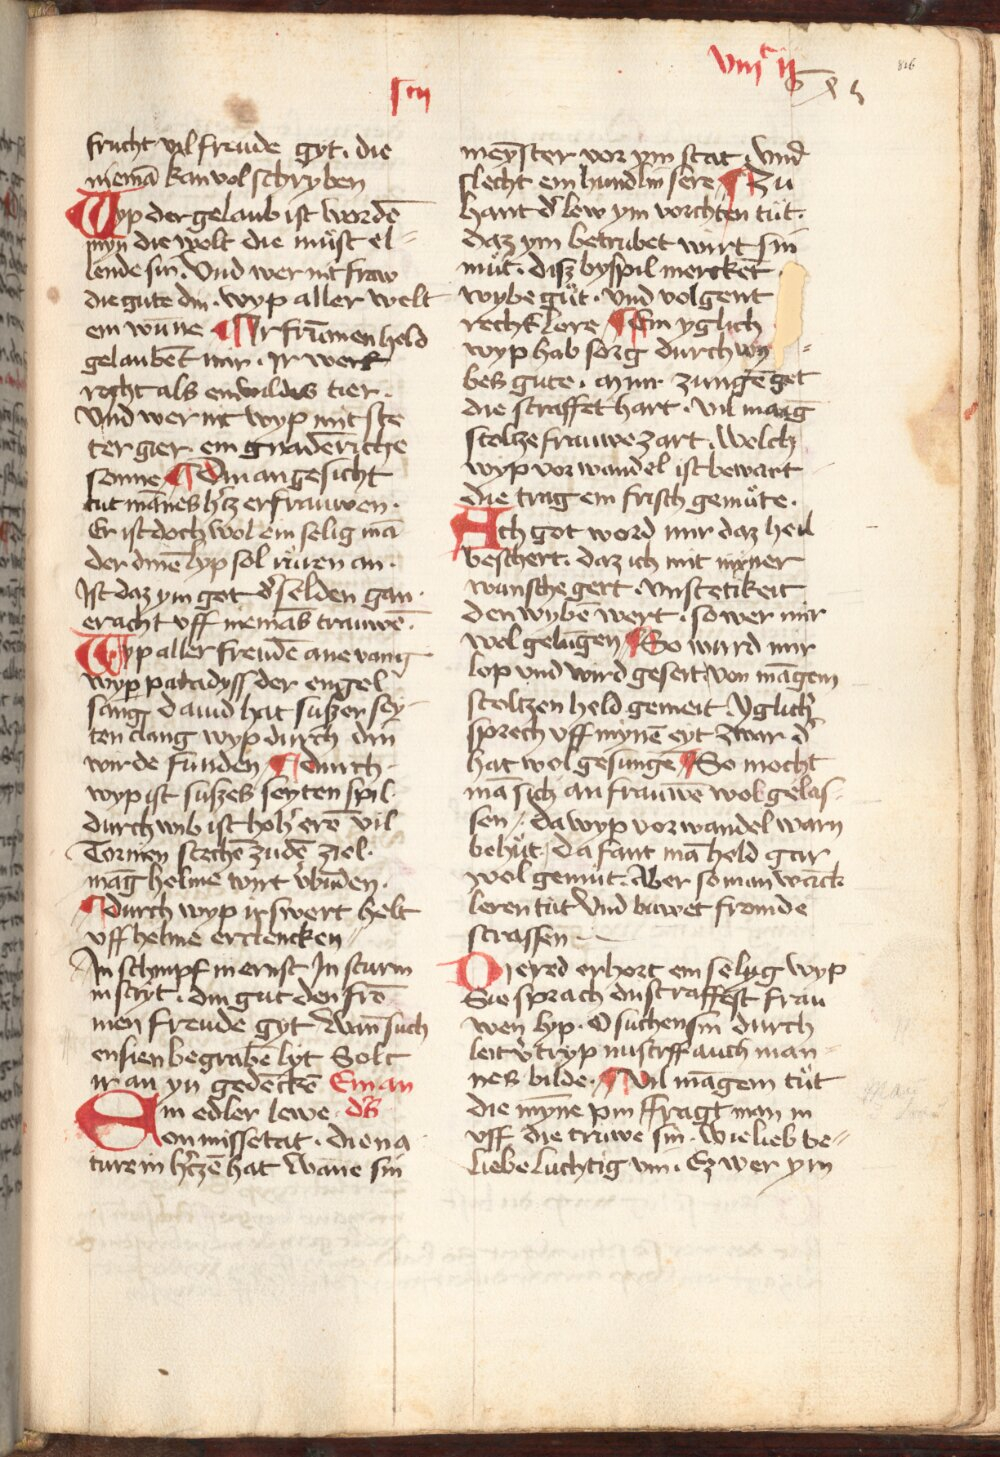 viiiᶜ ii
816
frucht vil freude gyt. die
niemā kan vol schryben
Wyp der gelaub ist wordē
myn die wolt die müst el-
lende sin. Und wer nit fraw
die gute din. wyp aller welt
ein wūne ¶ Ir frūmen held
gelaubēt mir. Ir wert
recht als ein wildes tier.
Und wer nit wyp mit ste
ter gier. ein gnadēriche
sonne ¶ Din angesicht
tut mānes hʼcz erfrauwen.
Er ist doch wol ein selig mā
der dinē lyp sol rüren an.
Ist daz ym got dʼ selden gan.
eracht uff niemās trauwē.
Wyp aller freudē ane vang
wyp paradyss der engel
sang david hat süszer sey-
ten clang wyp durch din
wirde funden ¶ durch
wyp ist süszes seyten spil
durch wib ist hohʼ erē vil
Torniren stechē zu dē zil.
māg helme wirt vʼbūden.
¶ durch wyp ir swert helt
uff helme erclencken
In schimpf in ernst In sturm
in stryt. din gut den frō
men freude gyt Wan such
en sien begrabē lyt Solt
ir an yn gedēckē Ein an
Ein edler lewe dʼs
on missetat. die na
ture in hʼczē hat Wāne sin
meyster vor ym stat. Und
slecht ein hundlin sere ¶ Zu
hant dʼ lew ym vorchten tüt.
daz ym betrubet wirt sin
müt. disz byspil mercket
wybe güt. und volgent
rechter lere ¶ Ein yglich
wyp hab sorg durch wy
bes gute. aynr zungē get
die straffet hart. vil māg
stoltze frauwe zart. Welch
wyp vor wandel ist bewart
die trag ein frisch gemüte.
Ach got word mir daz heil
beschert. daz ich mit myner
wunsche gert. unstetikeit
den wybē wert. so wer mir
wol gelūgen ¶ So wurd mir
lop und wird geseit von māgem
stoltzen held gemeit. Yglichʼ
sprech uff mynē eyt zwar dʼ
hat wol gesūngē ¶ So mocht
mā sich an frauwē wol gelas-
sen. da wyp vor wandel warn
behüt. da fant mā held gar
wol gemüt. Aber so man wāck
leren tüt Und buwet fromde
strassen
Die red erhort ein selyg wyp
Sie sprach du straffest frau
wen lyp. O suchen sin durch
leit vʼtryp nu straff auch man-
nes bilde. ¶ Vil māgem tüt
die myne pin ffragt man in
uff die truwe sin. wie lieb be-
liebe luchtig vin. Ez wer ym